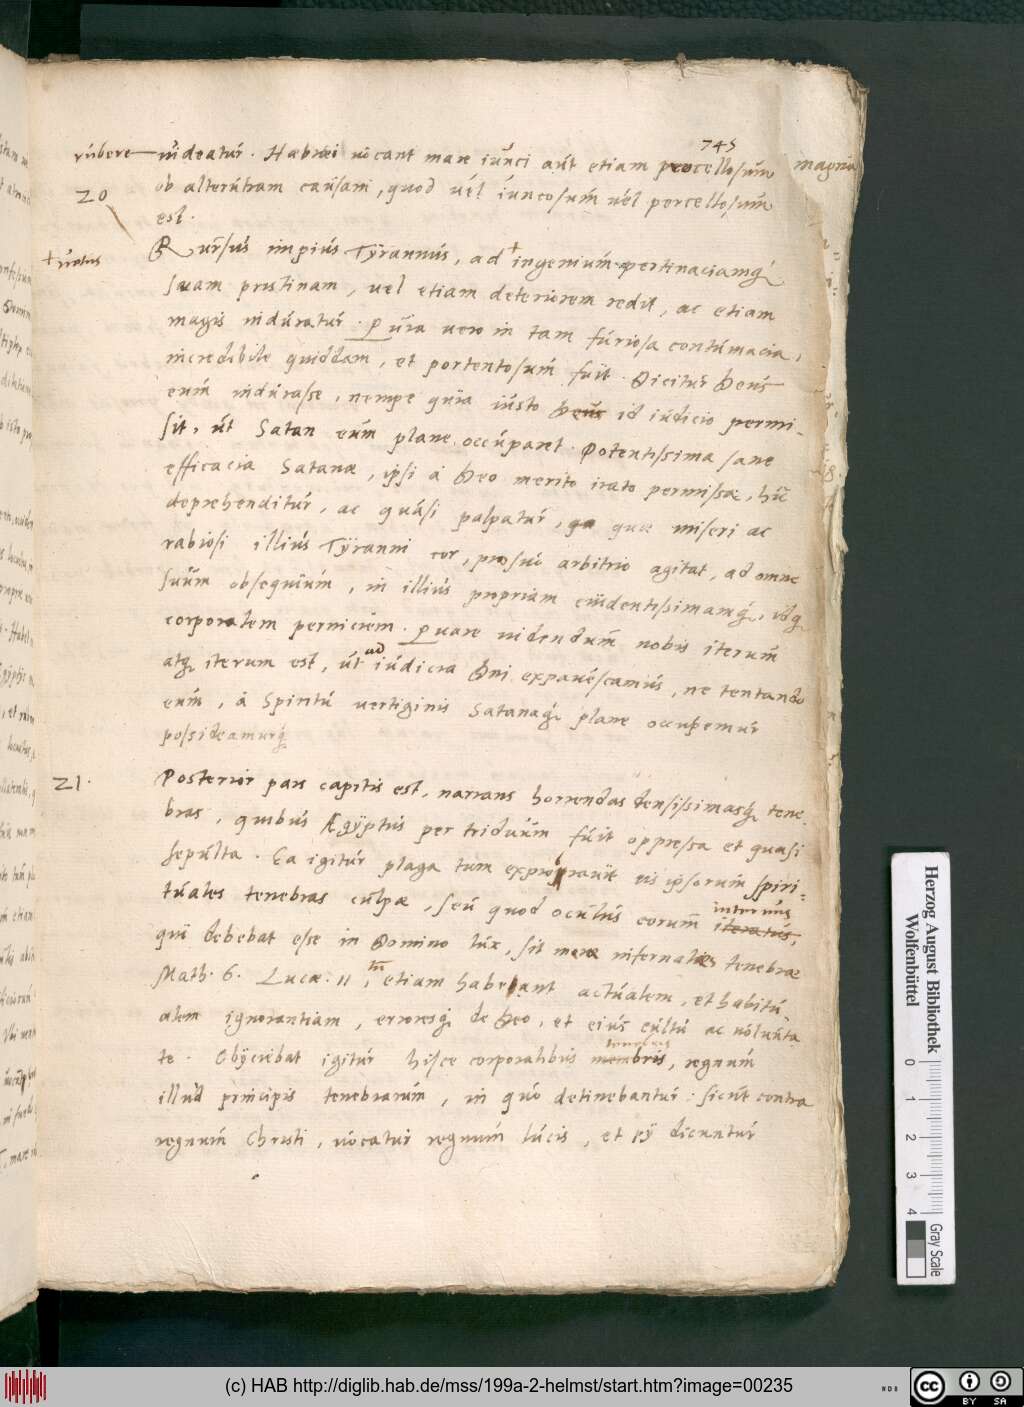 745
rubere uideatur. Hæbrei uocant mare iunci aut etiam procellosum
ob alterutram causam, quod uel iuncosum uel percellosum
est.
magna
20
Rursus impius Tyrannus, ad + ingenium pertinaciamq́
+ uetus
suam pristinam, uel etiam deteriorem redit, ac etiam
magis induratur. uero in tam furiosa contumacia,
incredibile quiddam, et portentosum fuit. Dicitur Deus
eum indurasse, nempe quia iusto Deus id iudicio permi-
sit, ut Satan eum plane occuparet. Potentissima sane
efficacia Satanæ, ipsi à Deo merito irato permissa, hic
deprehenditur, ac quasi palpatur, quæ miseri ac
rabiosi illius Tyranni cor, pro suo arbitrio agitat, ad omne
suum obsequium, in illius propriam euidentissimamq́,
corporalem perniciem. Quare uidendum nobis iterum
atq́ iterum est, ut ad iudicia Dni expauescamus, ne tentando
eum, à Spiritu vertiginis Satanaq́ plane occupemur
possideamurq́
21.
Posterior pars capitis est, narrans horrendas densissimasq́ tene-
bras, quibus Ægyptus per triduum fuit oppressa et quasi
sepulta. Ea igitur plaga tum exprobrauit eis ipsorum spiri-
tuales tenebras culpæ, seu quod oculus eorum internus,
qui debebat esse in Domino lux, sit meræ infernales tenebræ
Math. 6. Lucæ. 11, etiam habebant actualem, et habitu
alem ignorantiam, erroresq́ de Deo, et eius cultu ac uolunta
te. Obijciebat igitur hisce corporalibus tenebris, regnum
illud principis tenebrarum, in quo detinebantur: sicut contra
regnum Christi, uocatur regnum lucis, et pij dicuntur
Herzog August Bibliothek
Wolfenbüttel
0 1 2 3 4
Gray Scale
(c) HAB http://diglib.hab.de/mss/199a-2-helmst/start.htm?image=00235
CC BY SA